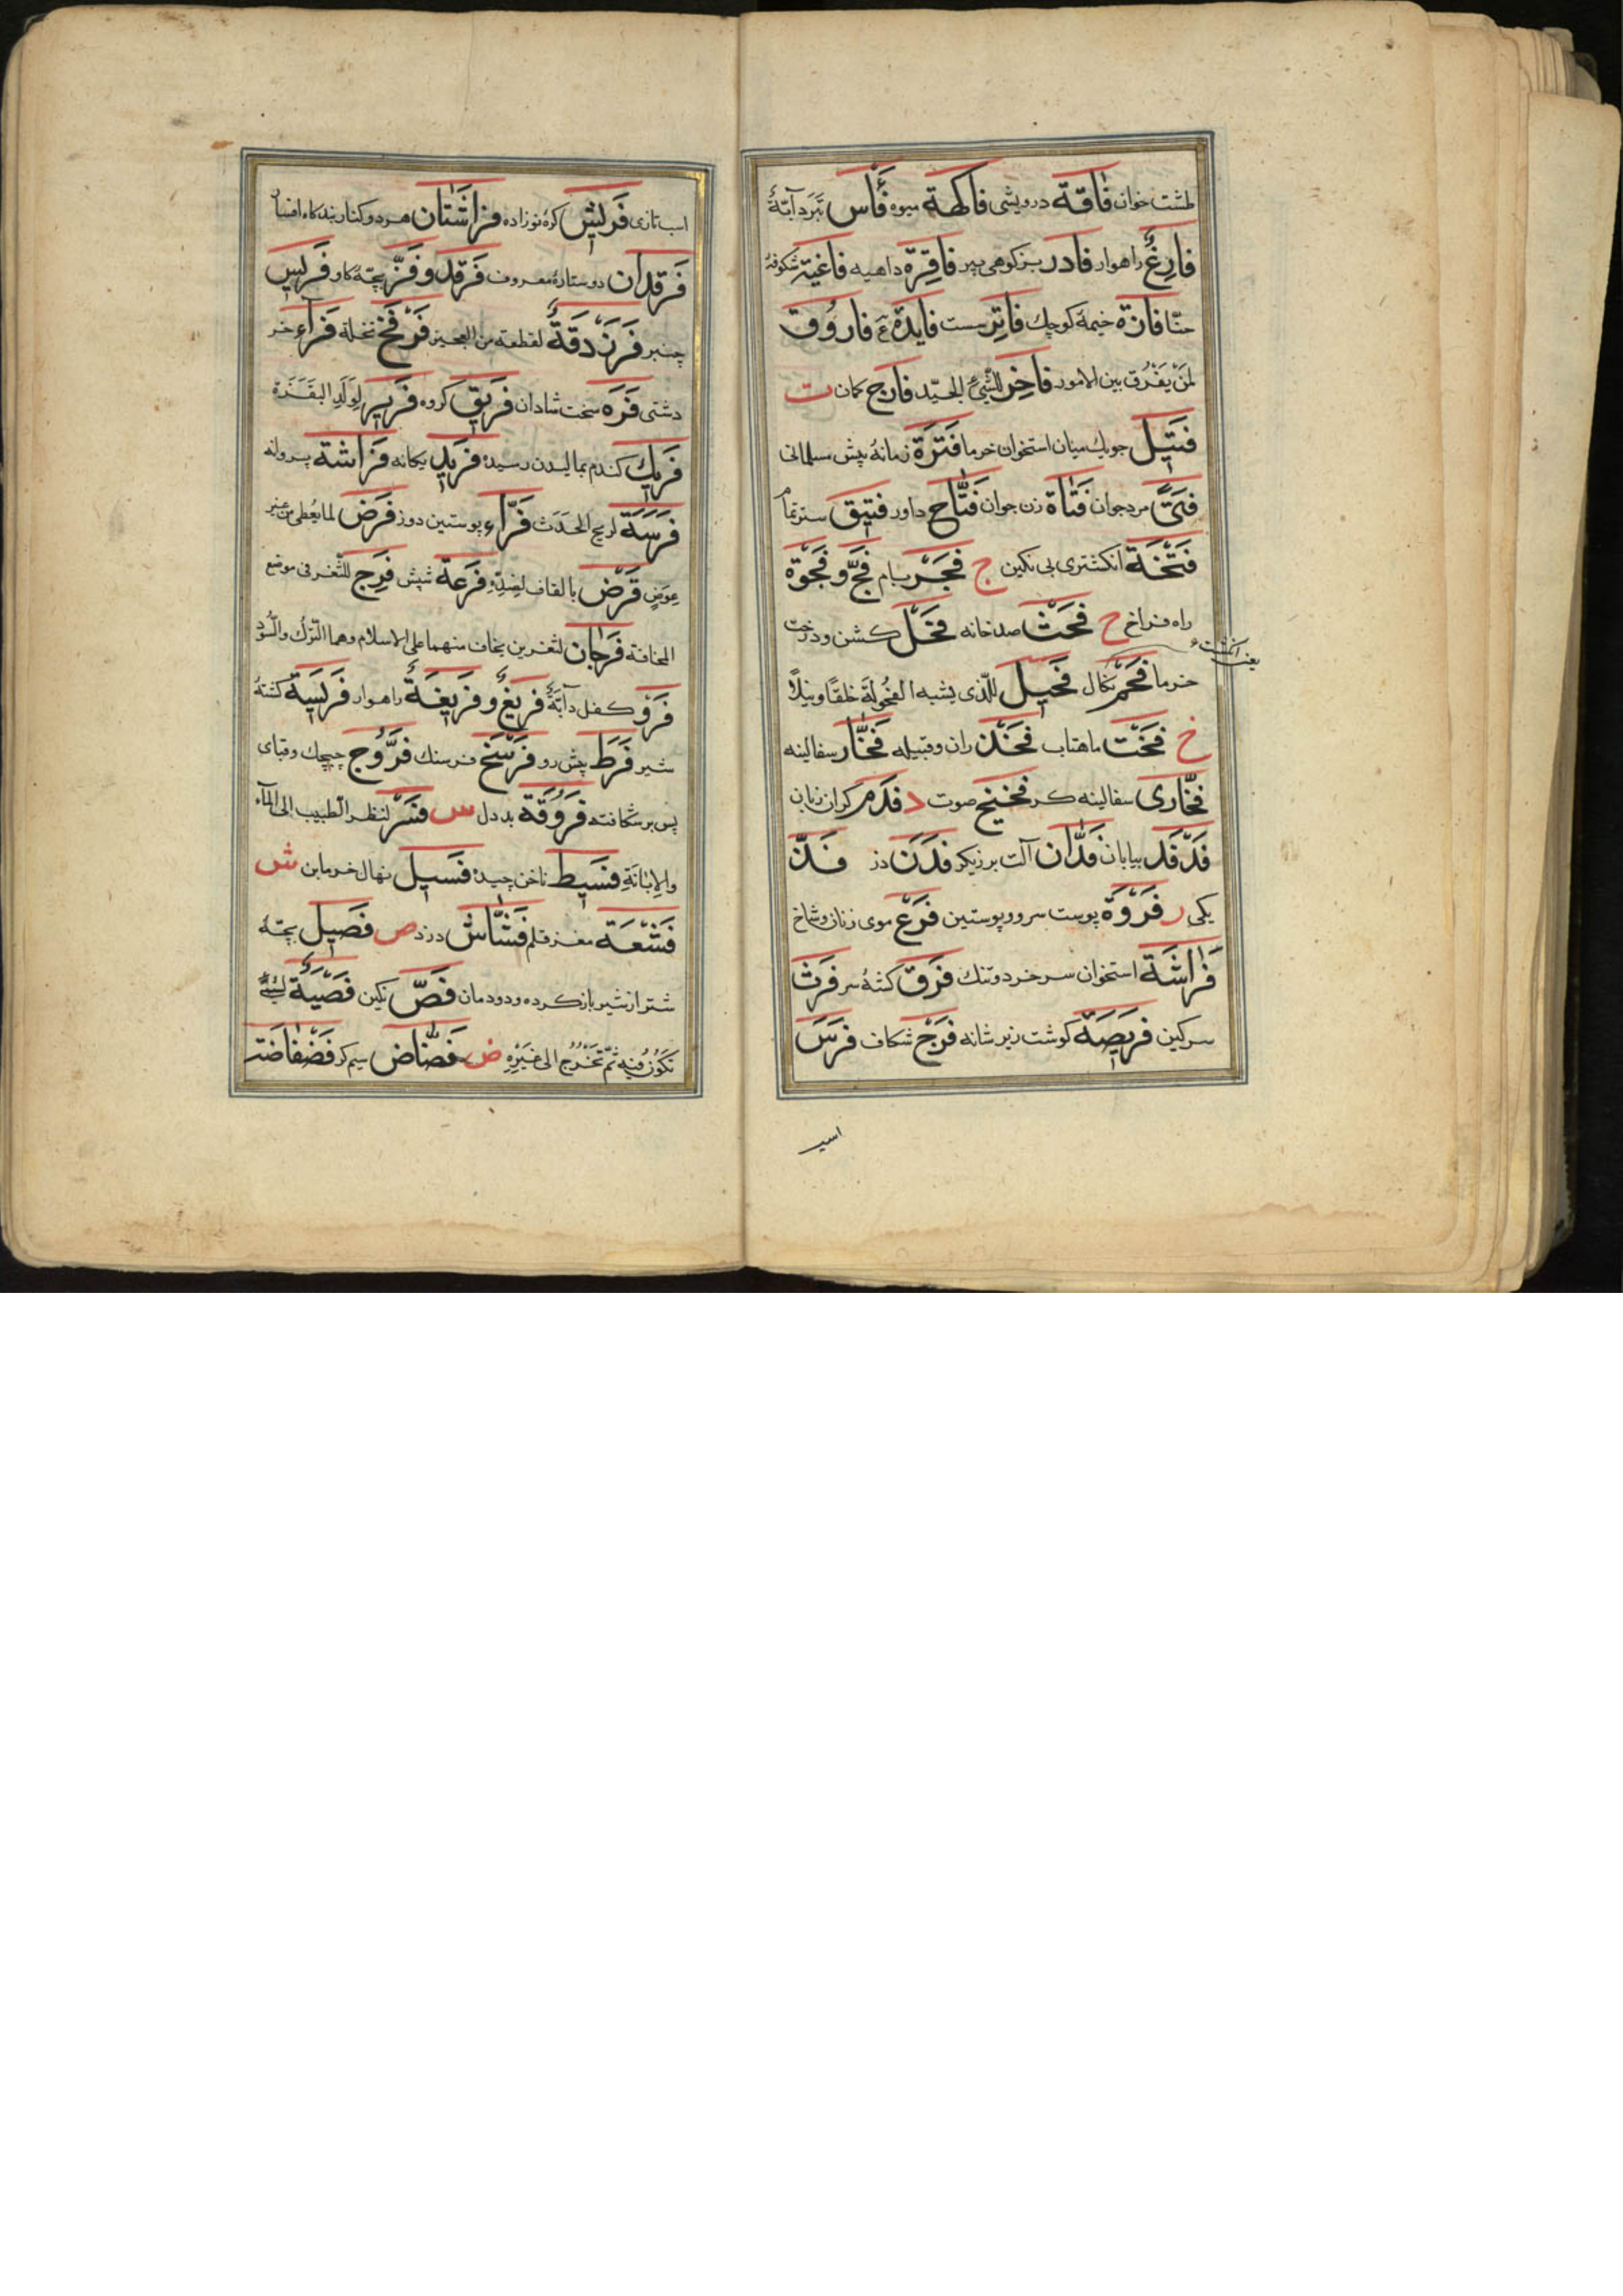 طشت خوان فَاقَة درویشی فَاكِهَة میوه فَأْس تبر دآبّةٌ
فَارِغٌ راهوار فَادِر بز کوهی پیر فَاقِرَة داهیه فَاغِیَة شکوفهٔ
حنّا فَازَة خیمهٔ کوچك فَاتِر سست فَایِدَة ع فَارُوق
لمَنْ یَفْرُق بین الامور فَاخِر للشَّیْءِ الجیّد فَارِج کمان ت
فَتِیل جویك میان استخوان خرما فَتْرَة زمانهٔ پیش مسلمانی
فَتًی مرد جوان فَتَاة زن جوان فَتَّاح داور فَتِیق ستر تمام
فَتْخَة انکشتری بی نکین ج فَجْر بام فَجّ و فَجْوَة
راه فراخ ح فَحْث صدخانه فَحْل کشن و درخت
خرما فَحْم زکال فَحِیل للّذی یشبه الفُحُولَة خلقًا و نبلًا
یعنی انکشت
خ فَخْت ماهتاب فَخْذ ران و قبیله فَخَّار سفالینه
فَخَّاری سفالینه کر فَخِیخ صوت د فَدْم کران زبان
فَدْفَد بیابان فَدَّان آلت برزیکر فَدَن دز فَذّ
یکی ر فَرْوَة پوست سر و پوستین فَرْع موی زنان و شاخ
فَرَاشَة استخوان سر خرد و تنك فَرْق کشهٔ سر فَرْث
سرکین فَرِیصَة کوشت زیر شانه فَرْج شکاف فَرَس
اسپ
اسب تازی فَرِیش کرهٔ نوزاده فَرَاشَتَان هر دو کنار بند کاه افسار
فَرْقَدَان دو ستارهٔ معروف فَرْقَد و فَزّ بچّهٔ کاو فَرِیس
چنبر فَرَزْدَقَةٌ لقطعة من العجین فَرْفَخ نخلة فَرَاء خر
دشتی فَرِه سخت شادان فَرِیق کروه فَرِیر لِوَلَدِ البَقَرَة
فَرِیك کندم بمالیدن رسیده فَرِید یکانه فَرَاشَة پروانه
فَرْسَة لریح الحَدَث فَرَّاء پوستین دوز فَرْض لما یُعْطی من غیر
عِوَضٍ قَرْض بالقاف لضِدِّه فَرْعَة شپش فَرْج للثَّغْر فی موضع
المخافة فَرْجَان لثغرین یخاف منهما علی الاسلام وهما التّرْك والسُّود
فَرْو کفل دآبّةٌ فَرِیغٌ و فَرِیغَةٌ راهوار فَرِیسَة کشتهٔ
شیر فَرَط پیش رو فَرْسَخ فرسنك فَرُّوج چیچك و قبای
پس بر شکافته فَرُوقَة بددل س فَسْر لنظر الطّبیب الی المآء
والاِبانَةِ فَسِیط ناخن چیده فَسِیل نهال خرمابن ش
فَشْعَة مغز قلم فَشَّاش دزد ص فَصِیل بچّهٔ
شتر از شیر بازکرده و دودمان فَصّ نکین فَصْیَةٌ لشَیْءٍ
تَکُونُ فِیه ثمّ تَخْرُجُ الی غَیْرِهِ ض فَضَّاض سیم کر فَضْفَاضَة